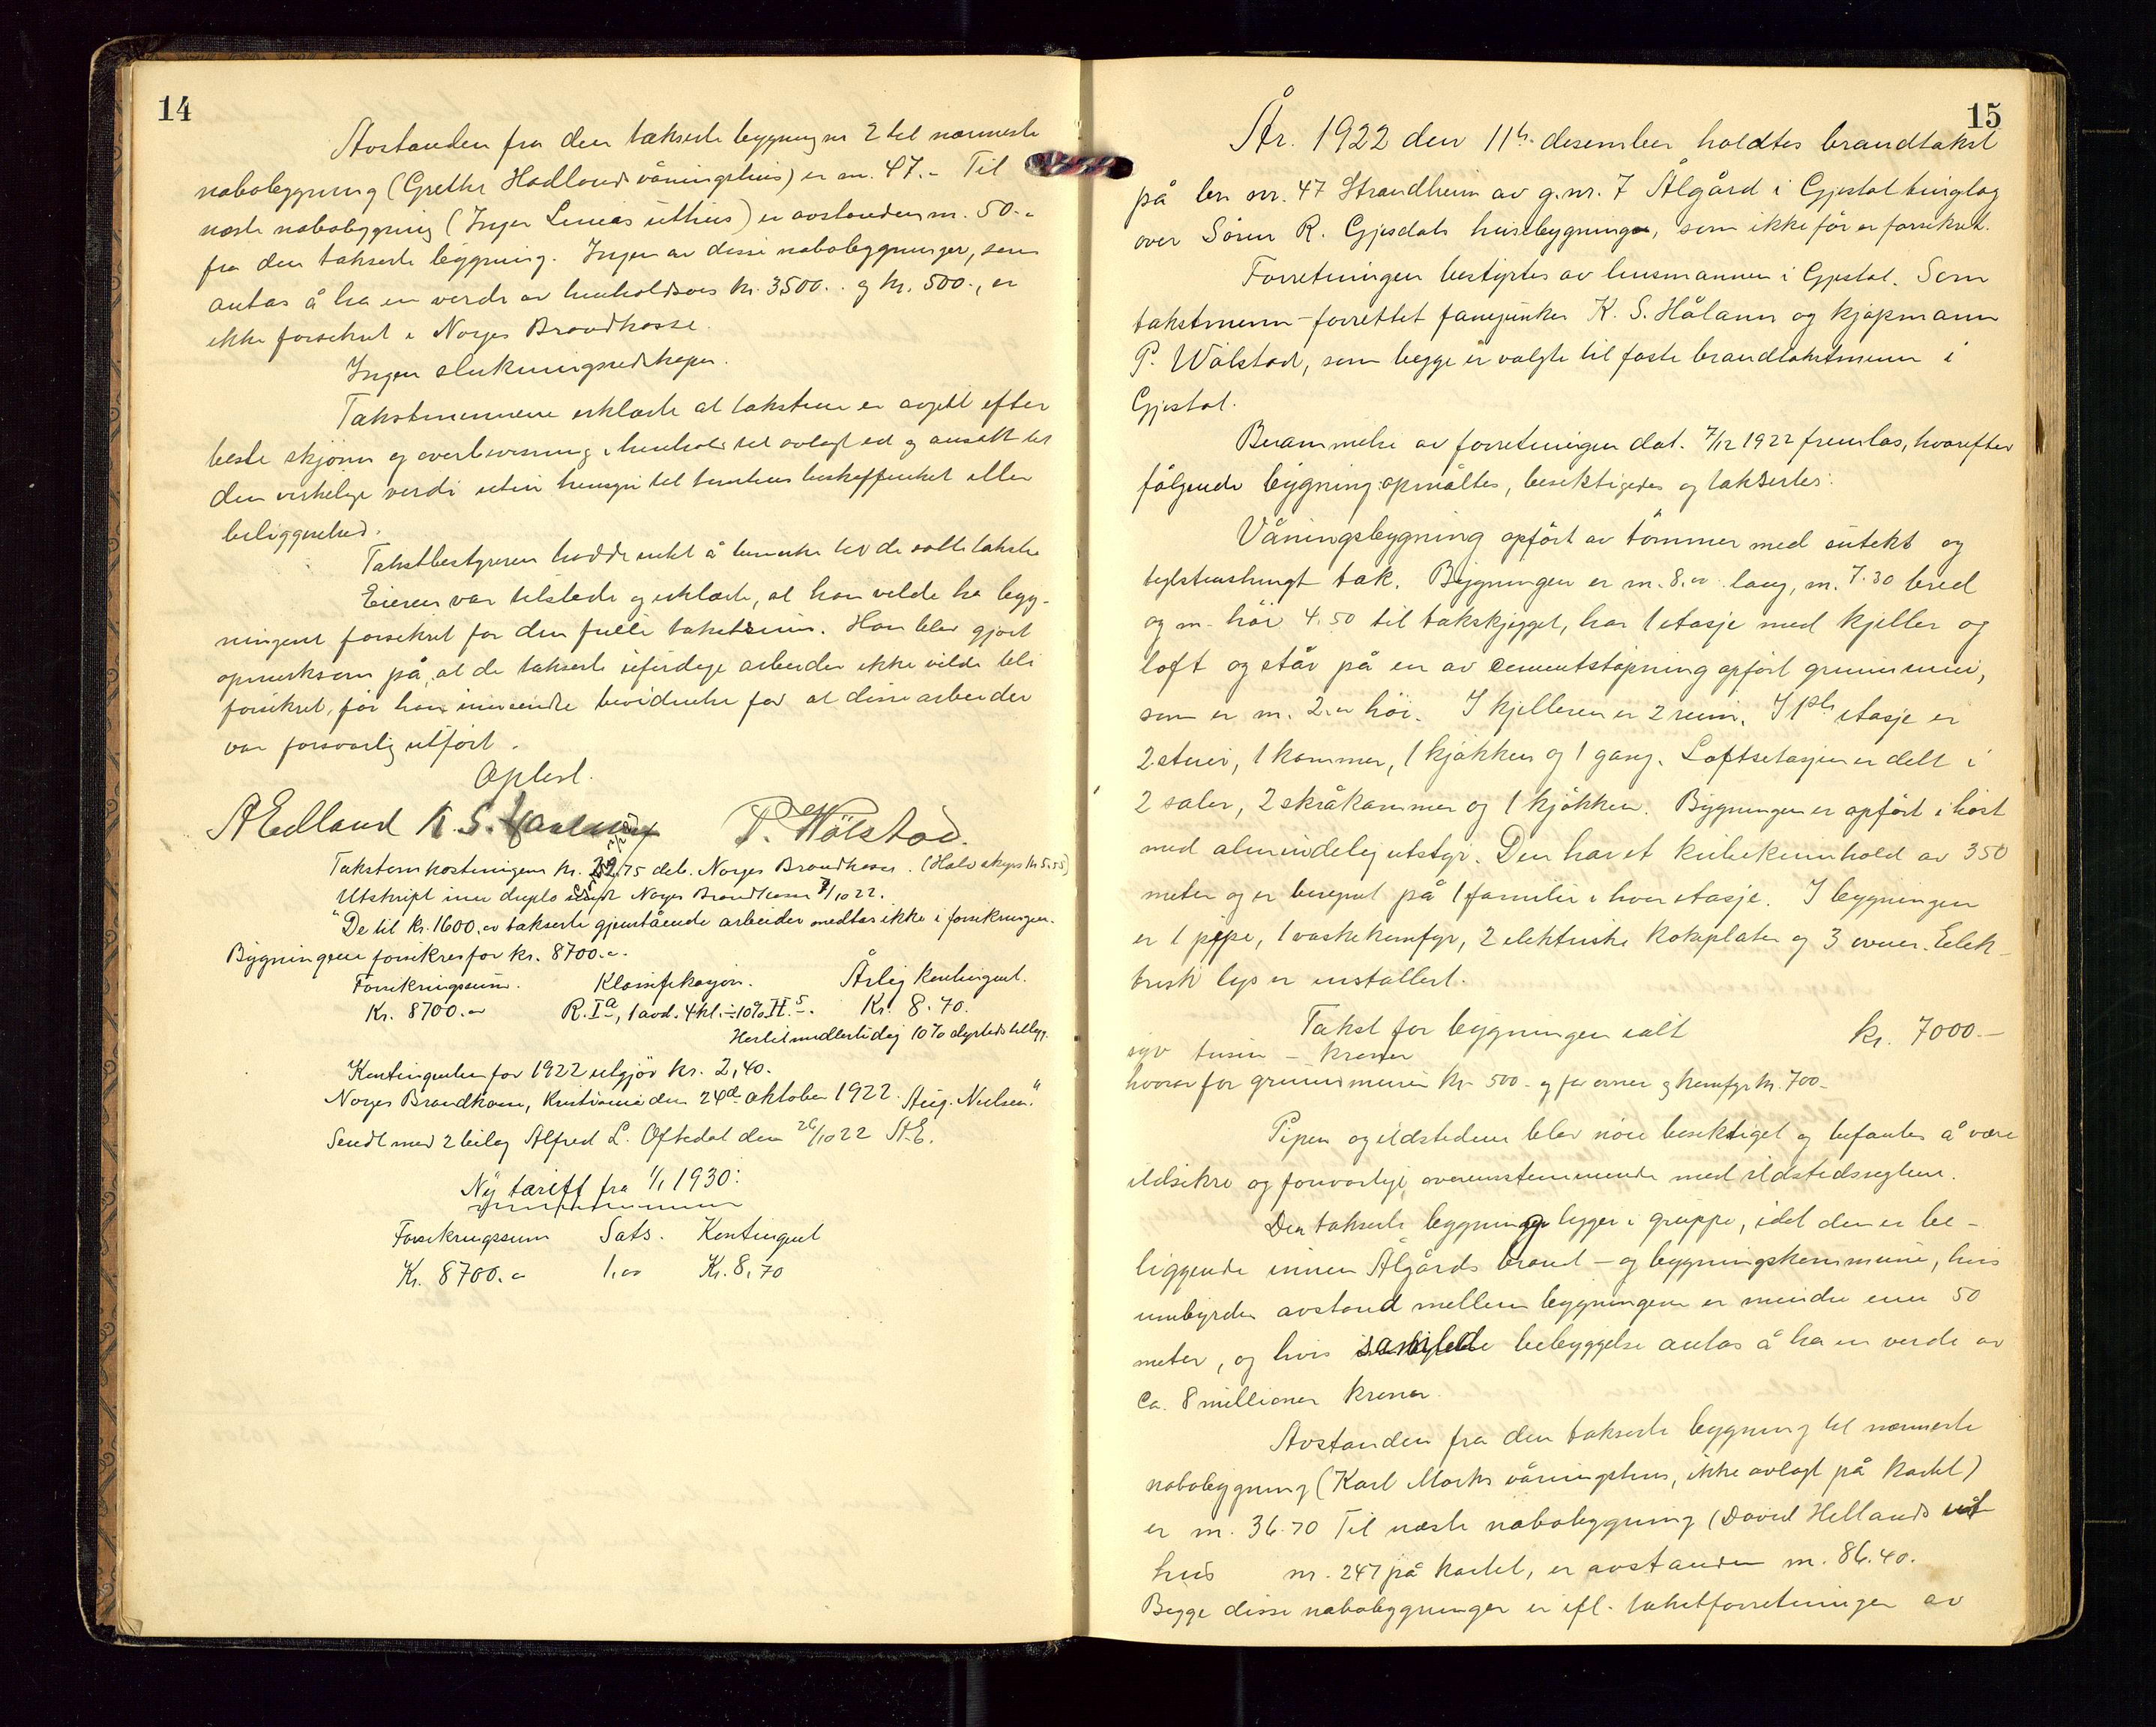 14
Avstanden fra den takserte bygning nr 2 til nærmeste
nabobygning (Grethe Hadlands våningshus) er m. 47.- Til
næste nabobygning (Inger Linias uthus) er avstanden m. 50.-
fra den takserte bygning. Ingen av disse nabobygninger, som
antas å ha en verdi av henholdsvis kr. 3500.- og kr. 500.-, er
ikke forsikret i Norges Brandkasse.
Ingen slukningsredskaper.
Takstmennene erklærte at taksten er avgitt efter
beste skjønn og overbevisning i henhold til avlagt ed og ansatt til
den virkelige verdi uten hensyn til tomtens beskaffenhet eller
beliggenhed.
Takstbestyreren hadde intet å bemerke til de satte takster
Eieren var tilstede og erklærte, at han vilde ha byg-
ningene forsikret for den fulle takstsum. Han blev gjort
opmerksom på, at de takserte uferdige arbeider ikke vilde bli
forsikret, før han innsendte bevidnelse for at disse arbeider
var forsvarlig utført.
Oplest.
A Edland K. S. P. Wölstad.
Takstomkostningene kr. 22,75 deb. Norges Brandkasse. (Halv skyss kr 5.55)
Utskript inn duplo sendt Norges Brandkasse 7/10 22.
"De til kr. 1600.00 takserte gjenstående arbeider medtas ikke i forsikringen.
Bygningene forsikres for kr. 8700.-.
Forsikringssum. Klassifikasjon. Årlig kontingent.
Kr. 8700.00 R. Ia, 1 avd. 4 kl. ÷ 10% H.s. Kr. 8.70.
Hertil midlertidig 10% dyrtidstillegg.
Kontingenten for 1922 utgjör kr. 2,40.
Norges Brandkasse, Kristiania den 24de oktober 1922. Aug. Nielsen."
Sendt med 2 beilag Alfred L. Oftedal den 26/10 22 A.E.
Ny tariff fra 1/1 1930:
Forsikringssum Sats. Kontingent
Kr. 8700.00 1,00 Kr. 8,70
15
År. 1922 den 11te desember holdtes brandtakst
på br. nr. 47 Strandheim av g.nr. 7 Ålgård i Gjestal tinglag
over Sören R. Gjesdals husebygning, som ikke för er forsikret.
Forretningen bestyrtes av lensmannen i Gjestal. Som
takstmenn forrettet fanejunker K. S. Hålann og kjöpmann
P. Wölstad, som begge er valgte til faste brandtakstmenn i
Gjestal.
Berammelse av forretningen dat. 7/12 1922 fremlas, hvorefter
fölgende bygning opmåltes, besiktigedes og taksertes:
Våningsbygning opfört av tömmer med sutekt og
teglstenshengt tak. Bygningen er m. 8.00 lang, m. 7.30 bred
og m. höi 4.50 til takskjegget, har 1 etasje med kjeller og
loft og står på en av cementstöpning opfört grunnmur,
som er m. 2.00 höi. I kjelleren er 2 rum. I 1ste etasje er
2 stuer, 1 kammer, 1 kjökken og 1 gang. Loftsetasjen er delt i
2 saler, 2 skråkammer og 1 kjökken. Bygningen er opfört i höst
med almindelig utstyr. Den har et kubikkinnhold av 350
meter og er beregnet på 1 familie i hver etasje. I bygningen
er 1 pipe, 1 vaskekomfyr, 2 elektriske kokeplater og 3 ovner. Elek-
trisk lys er installert.
Takst for bygningen ialt kr. 7000.-
syv tusin - kroner
hvorav for grunnmuren kr. 500.- og for ovner og komfyr kr. 700.-
Pipen og ildstedene blev nöie besiktiget og befantes å være
ildsikre og forsvarlige, overensstemmende med ildstedsreglene.
Den takserte bygning ligger i gruppe, idet den er be-
liggende innen Ålgårds brand- og bygningskommune, hvis
innbyrdes avstand mellem bygningene er mindre enn 50
meter, og hvis samlede bebyggelse antas å ha en verdi av
ca. 8 millioner kroner.
Avstanden fra den takserte bygning til nærmeste
nabobygning (Karl Morks våningshus, ikke avlagt på kartet)
er m. 36.70 Til næste nabobygning (David Hellands ut
hus nr. 247 på kartet, er avstanden m. 86.40.
Begge disse nabobygninger er ifl. takstforretninger av